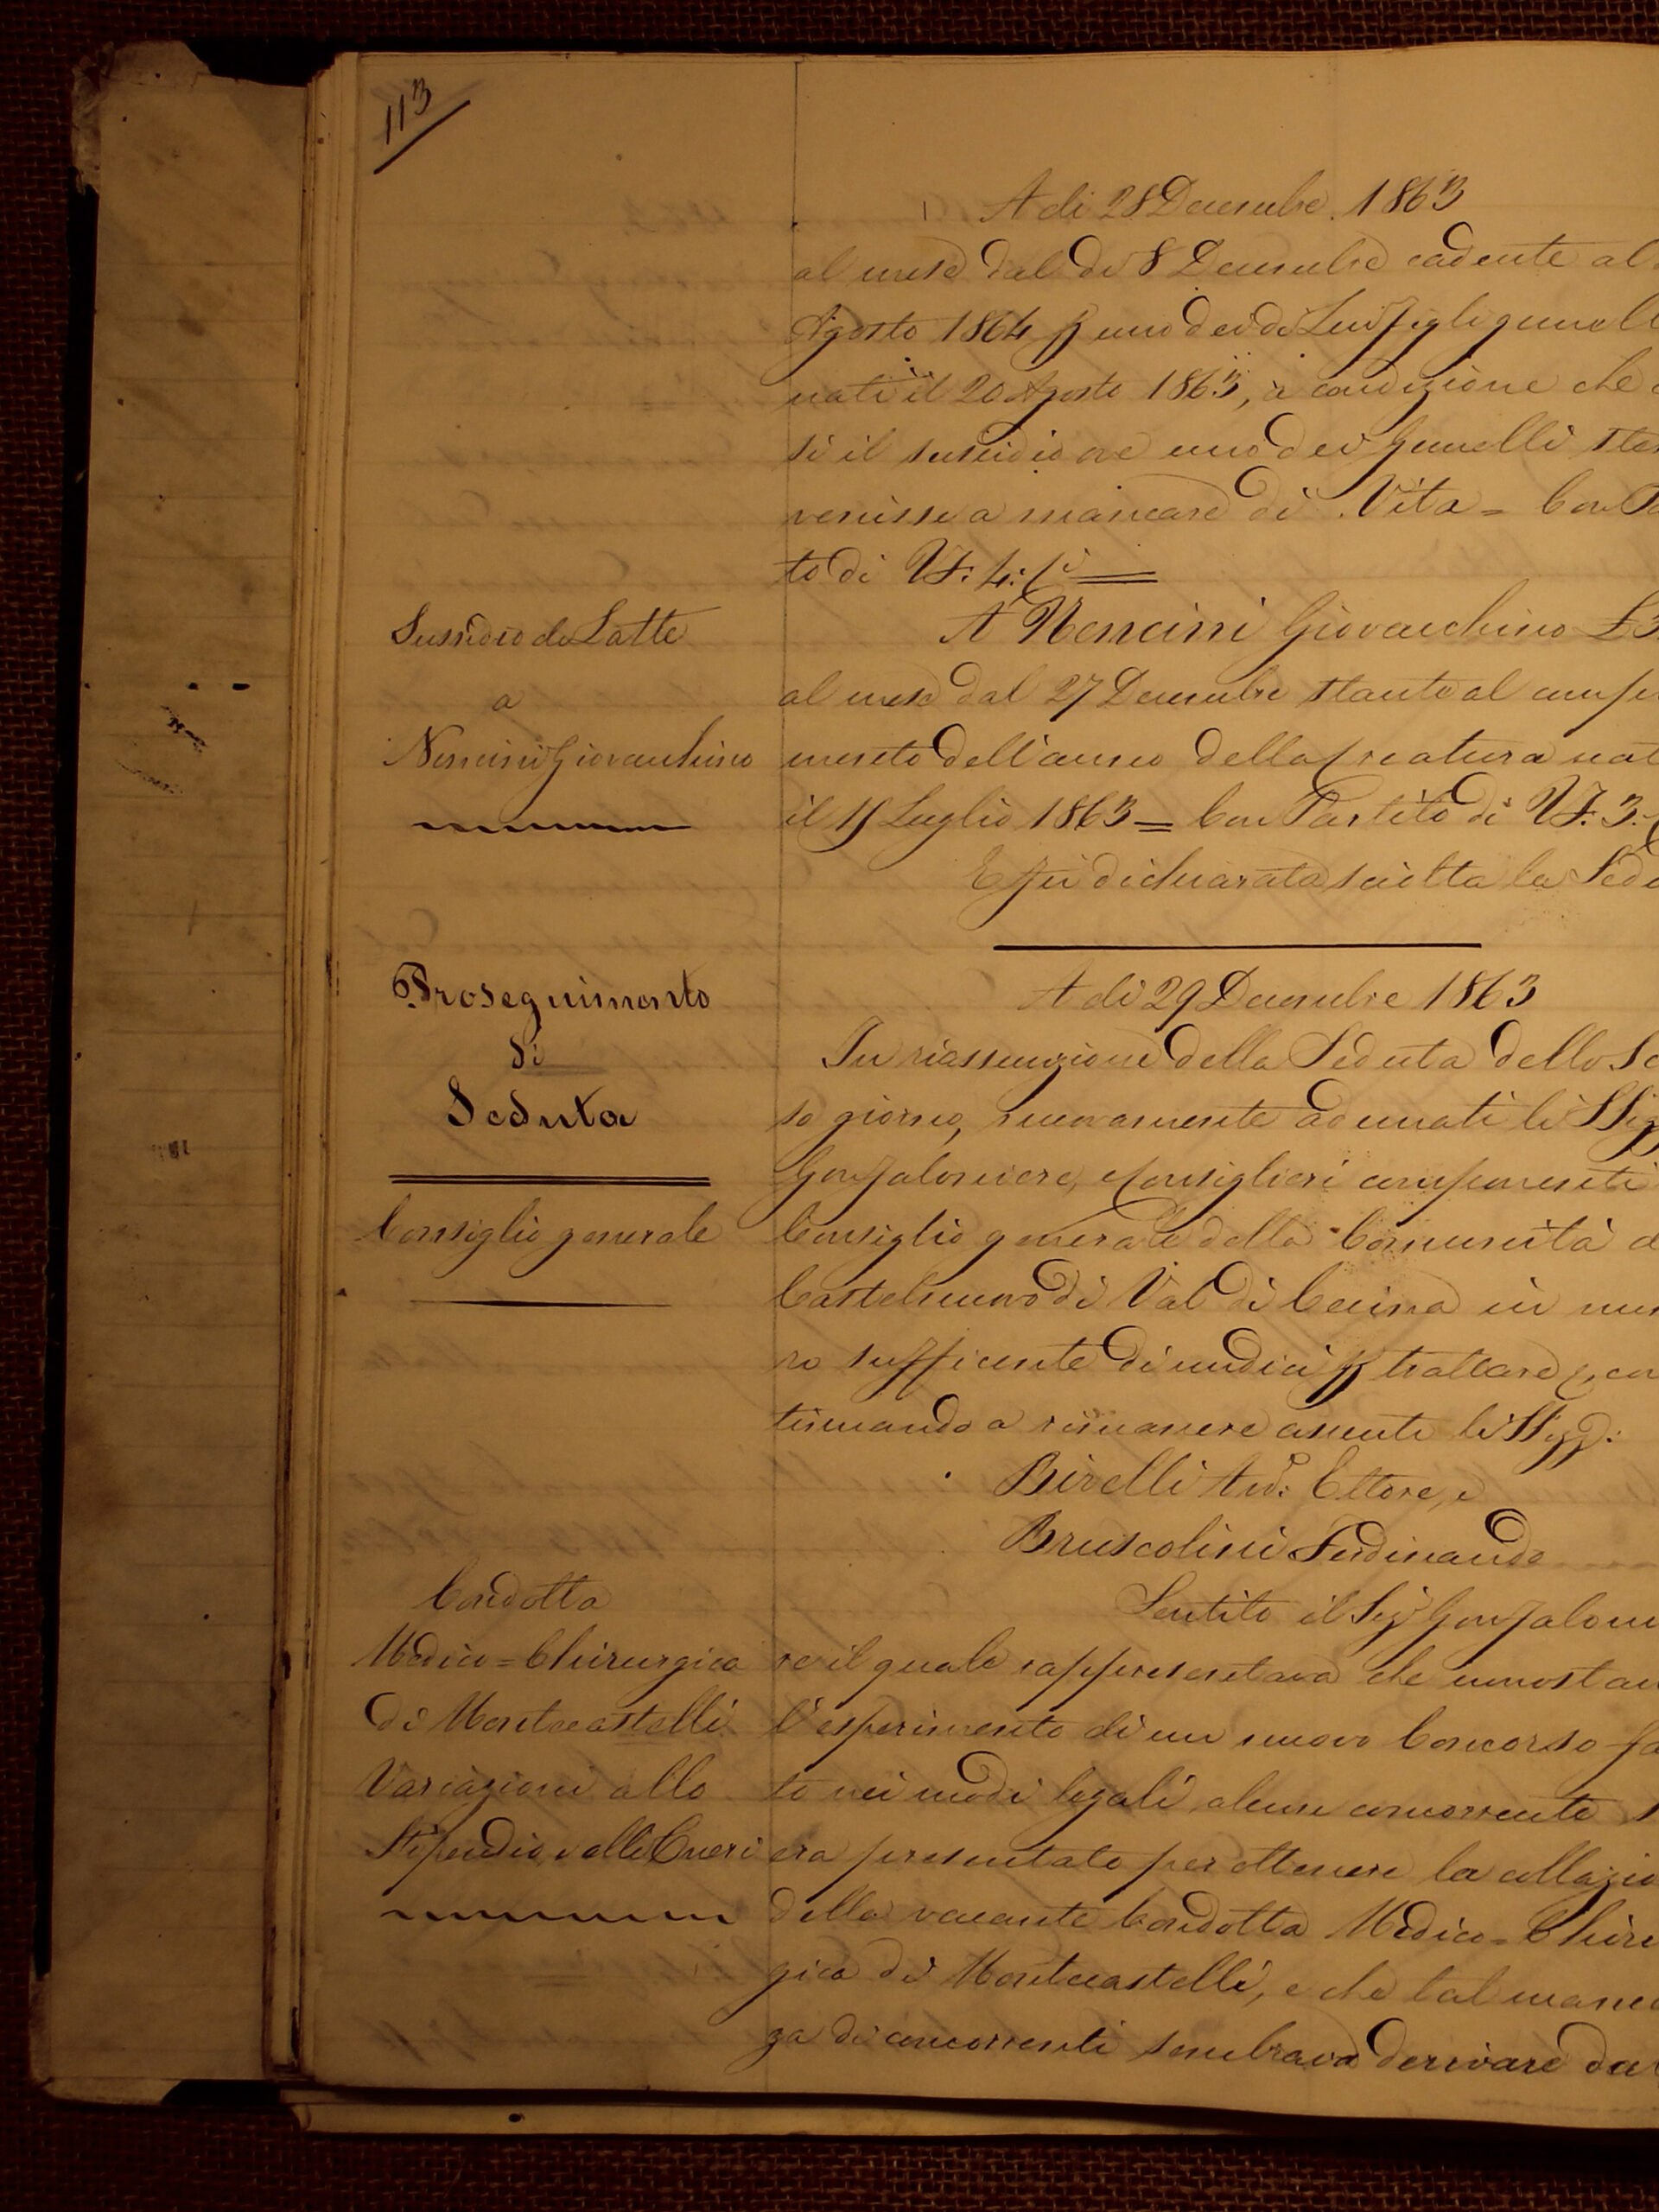 113
A dì 28 Decembre 1863
al mese dal dì 8 Decembre cadente al
Agosto 1864 p uno dei di Lui figli gemell
nati il 20 Agosto 1863, a condizione che
si il sussidio ove uno dei Gemelli stes
venisse a mancare di Vita = Con Pa
to di VF: 4: C
Sussidio di Latte
a
Nencini Giovacchino
A Nencini Giovacchino £ 3
al mese dal 27 Decembre stante al compi
mento dell'anno della Creatura nat
il 15 Luglio 1863 = Con Partito di VF. 3.
E fu dichiarata sciolta la Sedu
Proseguimento
di
Seduta
Consiglio generale
A dì 29 Decembre 1863
In riassunzione della Seduta dello Sc
so giorno, nuovamente adunati li SSig
Gonfaloniere, e Consiglieri componenti
Consiglio generale della Comunità d
Castelnuovo di Val di Cecina in nu
ro sufficente di undici p trattare &, con
tinuando a rimanere assenti li SSigg:
Birelli Avd: Ettore, e
Bruscolini Ferdinando
Condotta
Medico = Chirurgica
di Montecastelli
Variazioni allo
Stipendio e alli Oneri
Sentito il Sigr Gonfalonie
re il quale rappresentava che nonostan
l'esperimento di un nuovo Concorso fa
to nei modi legali, alcun concorrente s
era presentato per ottenere la collazio
della vacante Condotta Medico = Chiru
gica di Montecastelli, e che tal mancan
za di concorrenti sembrava derivare dal